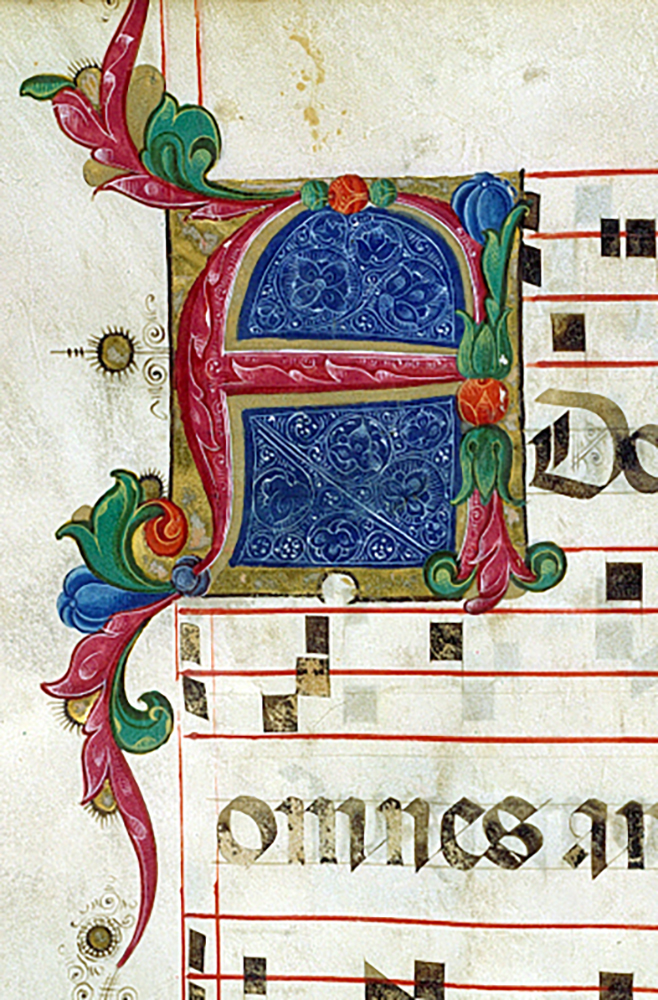 ADo
omnes an